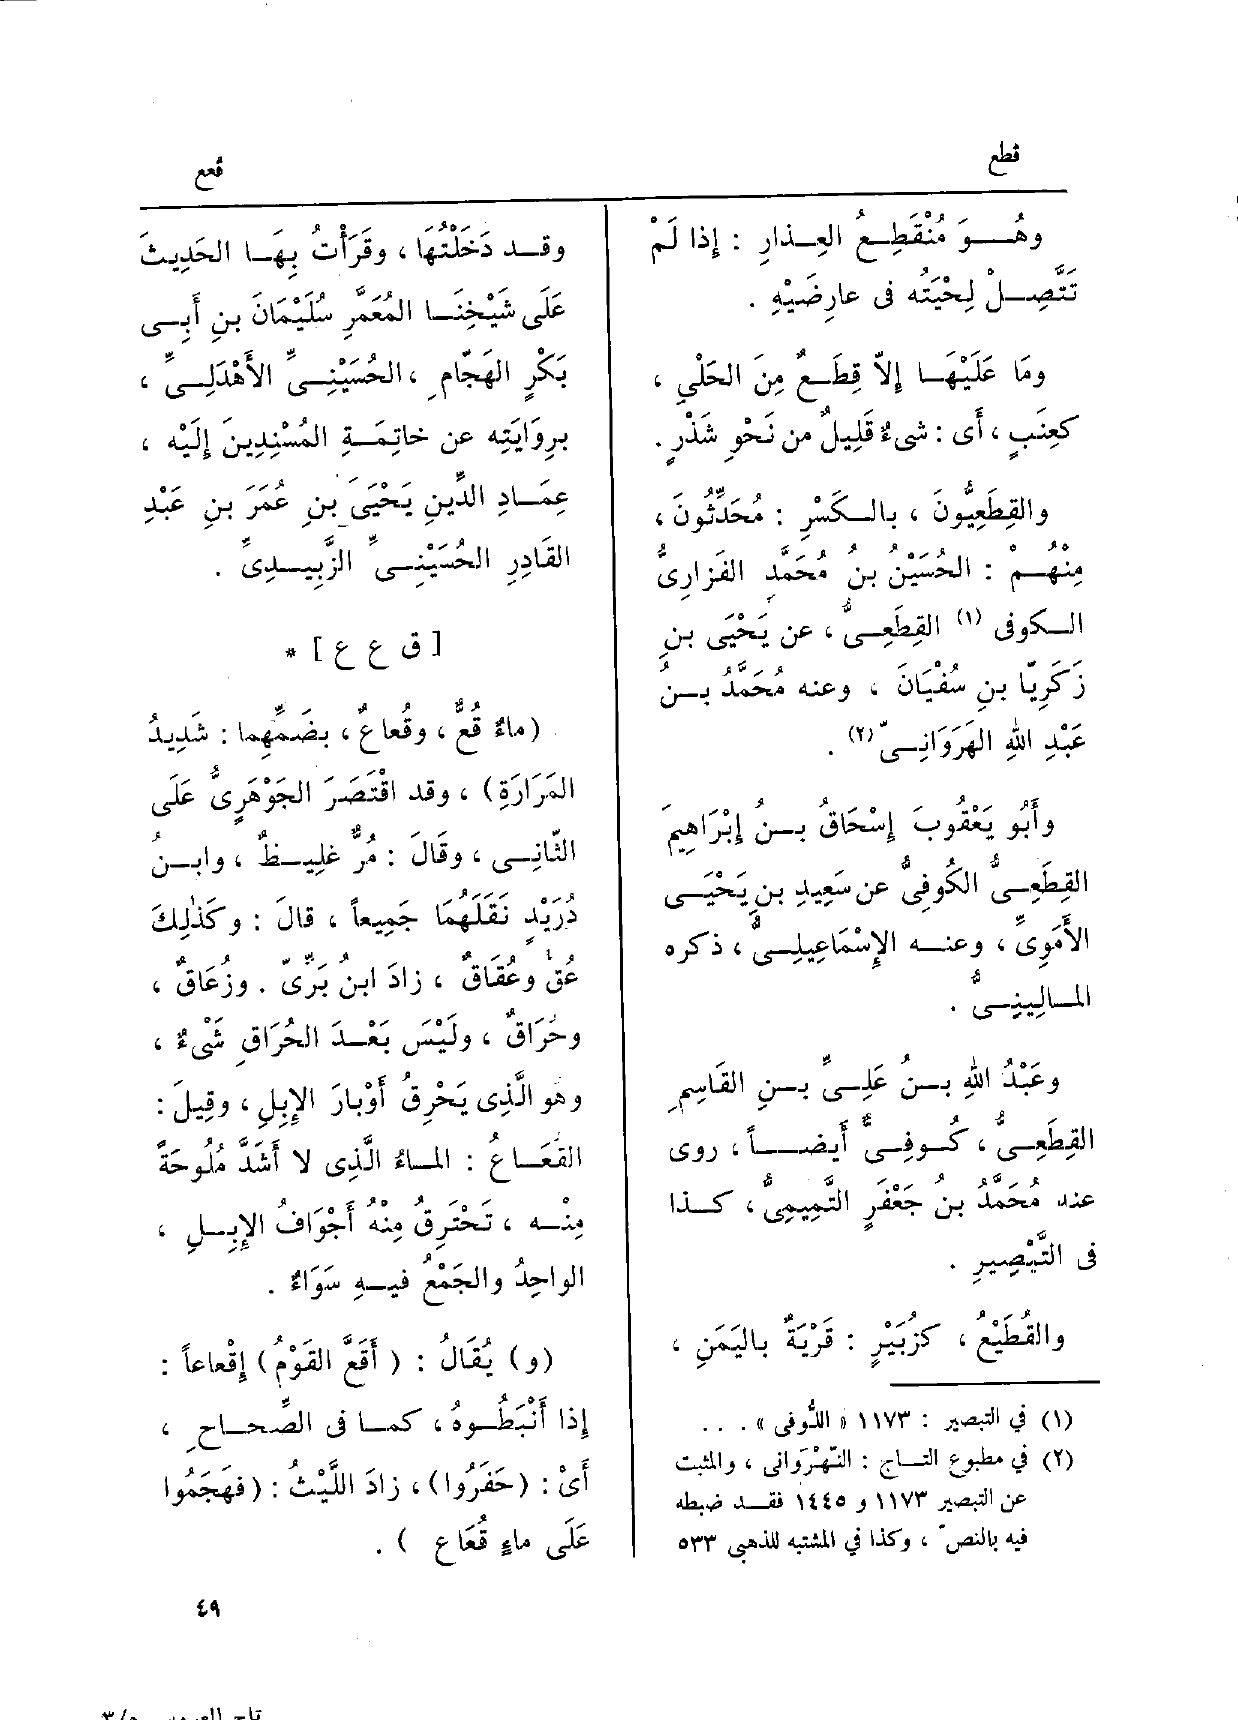 قطع
قعع
وهُــوَ مُنْقَطِعُ العِــذارِ : إِذا لَمْ
تَتَّصِــلْ لِحْيَتُه فى عارِضَيْهِ .
ومَا عَلَيْهَــا إِلاّ قِطَــعٌ مِنَ الحَلْيِ ،
كعِنَبٍ ، أَى : شىءٌ قَلِيلٌ من نَحْوِ شَذْرٍ .
والقِطَعِيُّونَ ، بالــكَسْرِ : مُحَدِّثُونَ ،
مِنْهُــمْ : الحُسَيْنُ بنُ مُحَمَّدٍ الفَزارِىُّ
الــكوفى (١) القِطَعِــىُّ ، عن يَحْيَى بنِ
زَكَرِيّا بنِ سُفْيَانَ ، وعنه مُحَمَّدُ بــنُ
عَبْدِ اللهِ الهَرَوَانِــىّ (٢) .
وأَبُو يَعْقُوبَ إِسْحَاقُ بــنُ إِبْرَاهِيمَ
القِطَعِــىُّ الكُوفِىُّ عن سَعِيدِ بنِ يَحْيَــى
الأُمَوِىِّ ، وعنــه الإِسْمَاعِيلِــىُّ ، ذكره
المــالِينِــىُّ .
وعَبْدُ اللهِ بــنُ عَلِــىِّ بــنِ القَاسِمِ
القِطَعِــىُّ ، كُــوفِــىٌّ أَيضــاً ، روى
عنه مُحَمَّدُ بنُ جَعْفَرٍ التَّمِيمِىُّ ، كــذا
فى التَّبْصِيرِ .
والقُطَيْعُ ، كزُبَيْرٍ : قَرْيَةٌ باليَمَنِ ،
(١) في التبصير : ١١٧٣ « اللُّوفى » . . .
(٢) في مطبوع التــاج : النَّهْرَوانى ، والمثبت
عن التبصير ١١٧٣ و ١٤٤٥ فقــد ضبطه
فيه بالنص ، وكذا في المشتبه للذهبى ٥٣٣
وقــد دَخَلْتُهَا ، وقَرَأْتُ بِهَــا الحَدِيثَ
عَلَى شَيْخِنَــا المُعَمَّرِ سُلَيْمَانَ بنِ أَبِــى
بَكْرٍ الهَجّامِ ، الحُسَيْنِــىِّ الأَهْدَلِــىِّ ،
بِرِوَايَتِه عن خاتِمَــةِ المُسْنِدِينَ إِلَيْه ،
عِمَــادِ الدِّينِ يَحْيَى بنِ عُمَرَ بنِ عَبْدِ
القَادِرِ الحُسَيْنِــىِّ الزَّبِيــدِىِّ .
[ ق ع ع ] *
(ماءٌ قُعٌّ ، وقُعاعٌ ، بضَمِّهِما : شَدِيدُ
المَرَارَةِ) ، وقد اقْتَصَرَ الجَوْهَرِىُّ عَلَى
الثّانِــى ، وقَالَ : مُرٌّ غلِيــظٌ ، وابــنُ
دُرَيْدٍ نَقَلَهُمَا جَمِيعاً ، قالَ : وكَذٰلِكَ
عُقٌّ وعُقَاقٌ ، زادَ ابنُ بَرِّىّ . وزُعَاقٌ ،
وحُرَاقٌ ، ولَيْسَ بَعْــدَ الحُرَاقِ شَىْءٌ ،
وهو الَّذِى يَحْرِقُ أَوْبَارَ الإِبِلِ ، وقِيلَ :
القُعَــاعُ : المــاءُ الَّذِى لا أَشَدَّ مُلُوحَةً
مِنْــه ، تَحْتَرِقُ مِنْهُ أَجْوَافُ الإِبِــلِ ،
الواحِدُ والجَمْعُ فيــهِ سَوَاءٌ .
(و) يُقَالُ : ( أَقَعَّ القَوْمُ) إِقْعاعاً :
إِذا أَنْبَطُــوهُ ، كمــا فى الصِّحــاحِ ،
أَىْ : (حَفَرُوا) ، زادَ اللَّيْثُ : (فهَجَمُوا
عَلَى ماءٍ قُعَاع ) .
٤٩